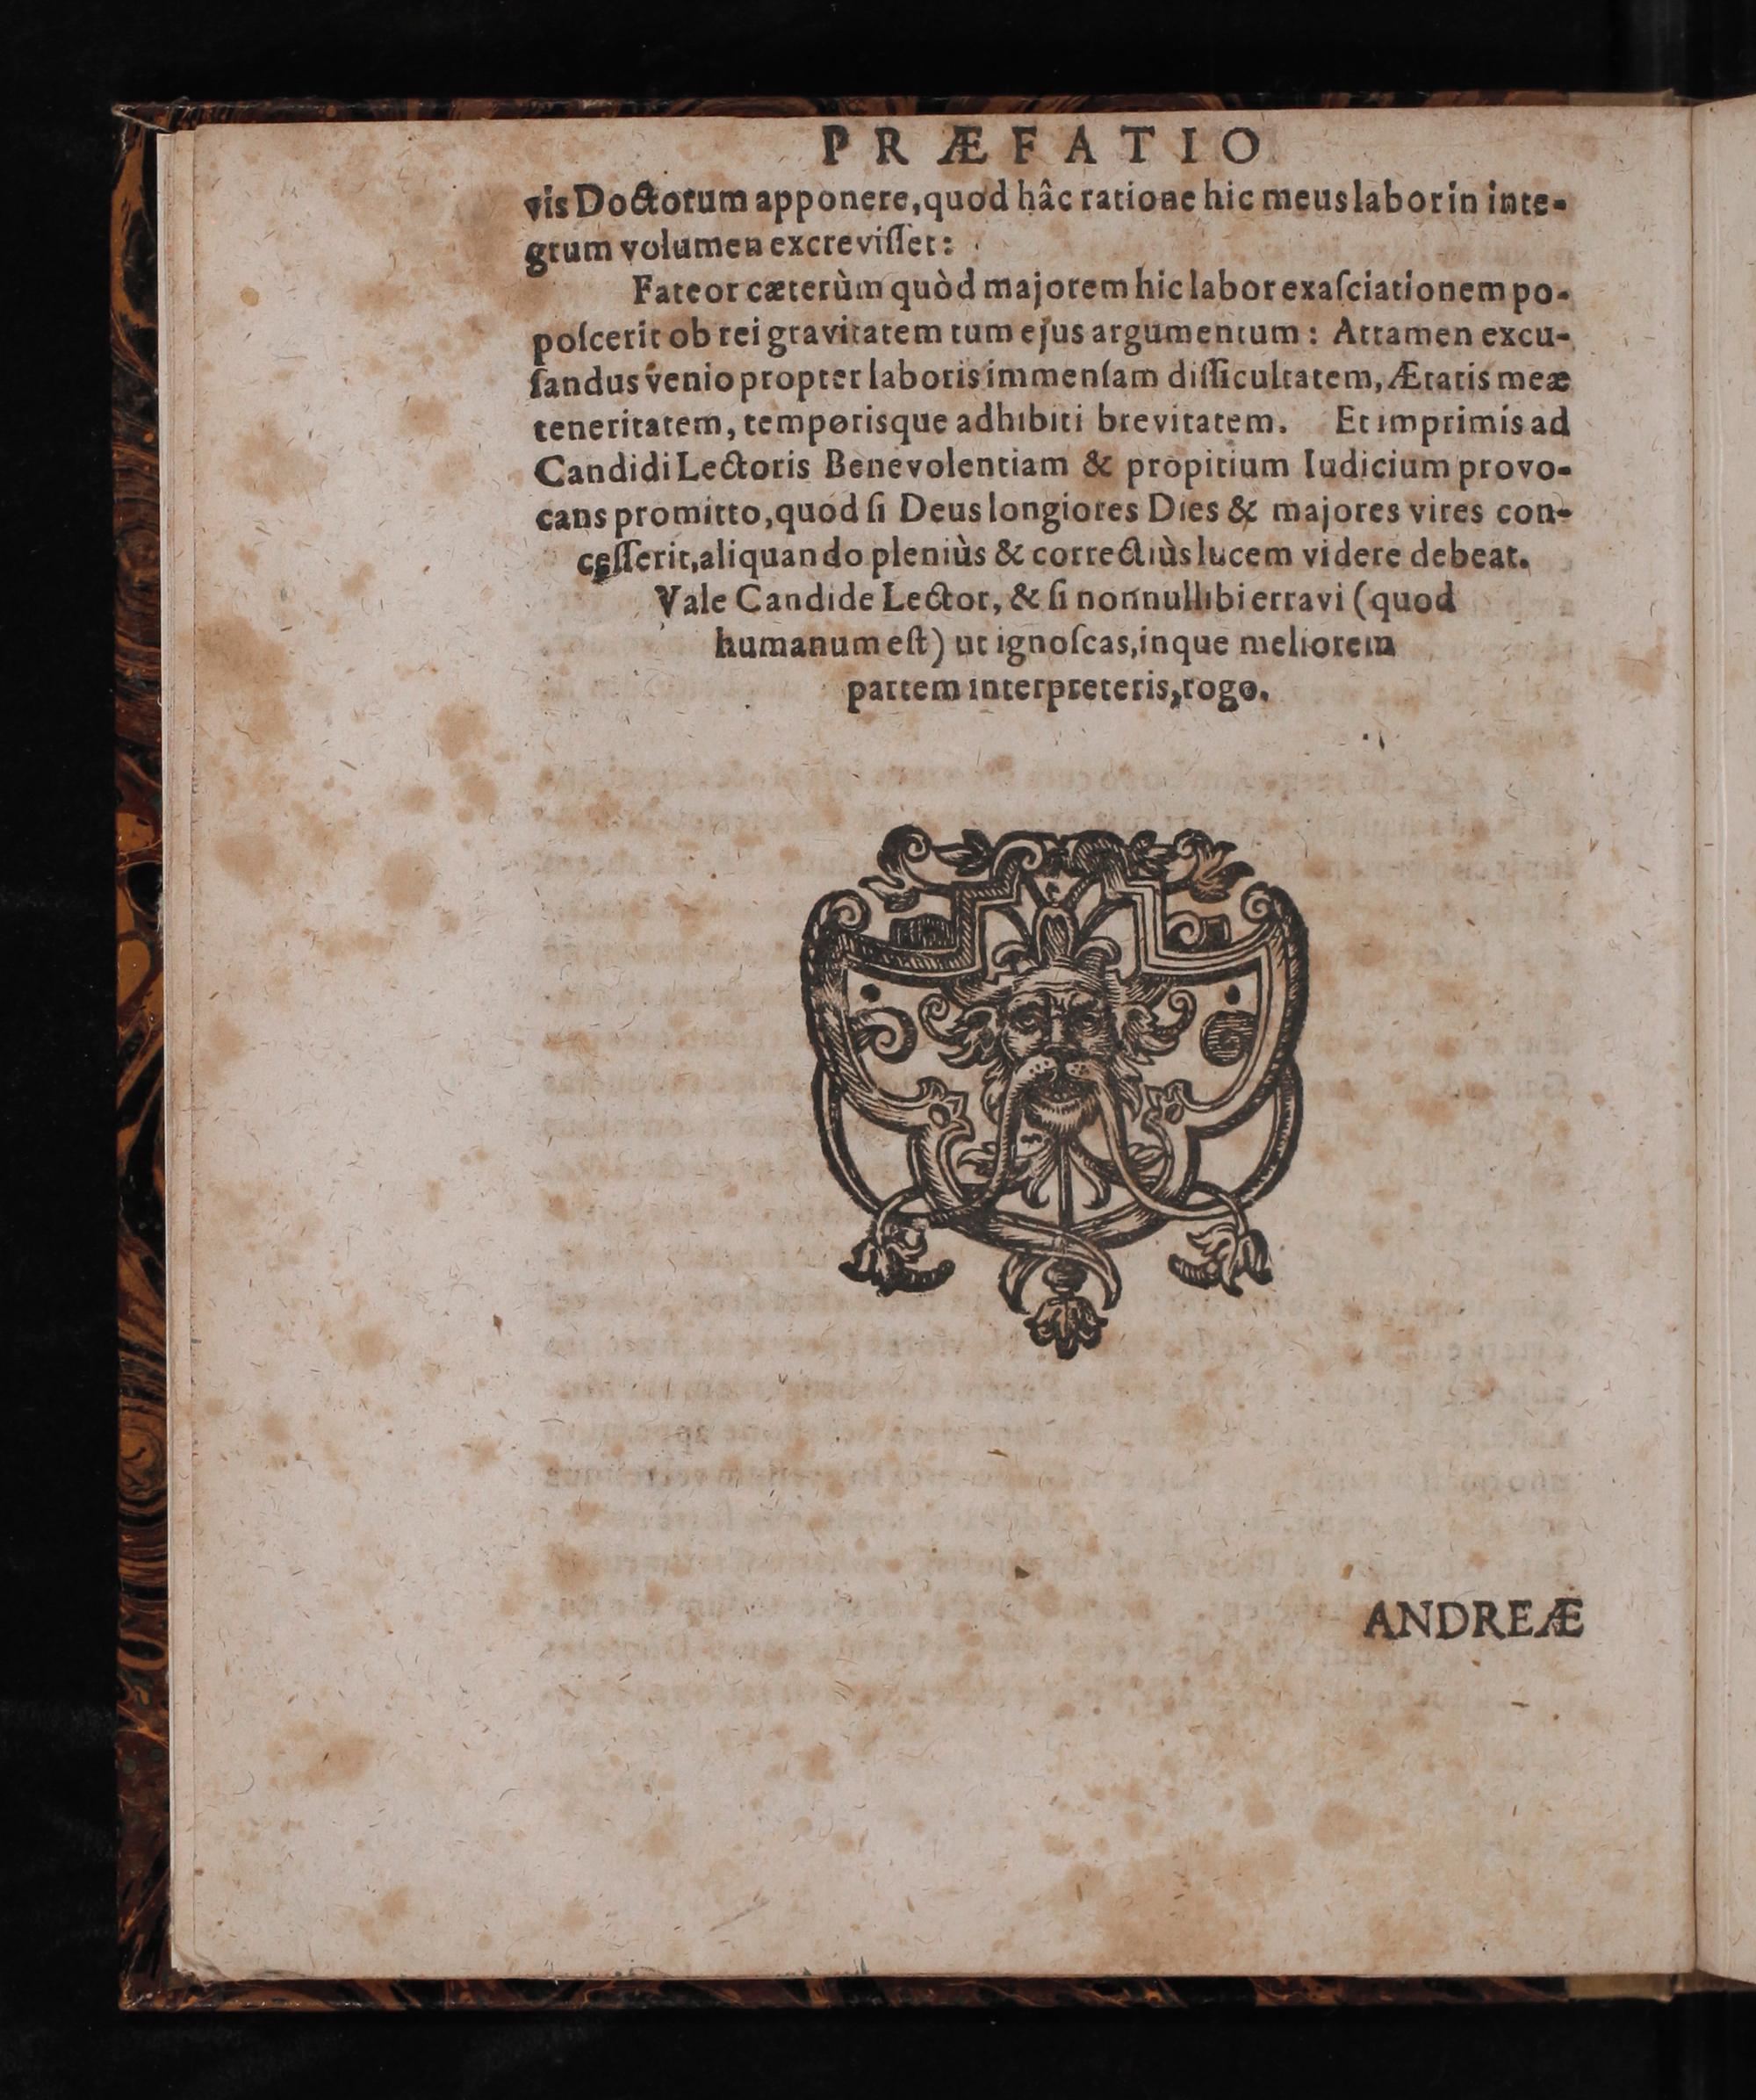 PRÆFATIO
vis Doctorum apponere, quod hâc ratione hic meus labor in inte-
grum volumen excreviſſet:
Fateor cæterùm quòd majorem hic labor exaſciationem po-
poſcerit ob rei gravitatem tum ejus argumentum: Attamen excu-
ſandus venio propter laboris immenſam difficultatem, Ætatis meæ
teneritatem, temporisque adhibiti brevitatem. Et imprimis ad
Candidi Lectoris Benevolentiam & propitium Iudicium provo-
cans promitto, quod ſi Deus longiores Dies & majores vires con-
ceſſerit, aliquando pleniùs & correctiùs lucem videre debeat.
Vale Candide Lector, & ſi nonnullibi erravi (quod
humanum eſt) ut ignoſcas, inque meliorem
partem interpreteris, rogo.
ANDREÆ